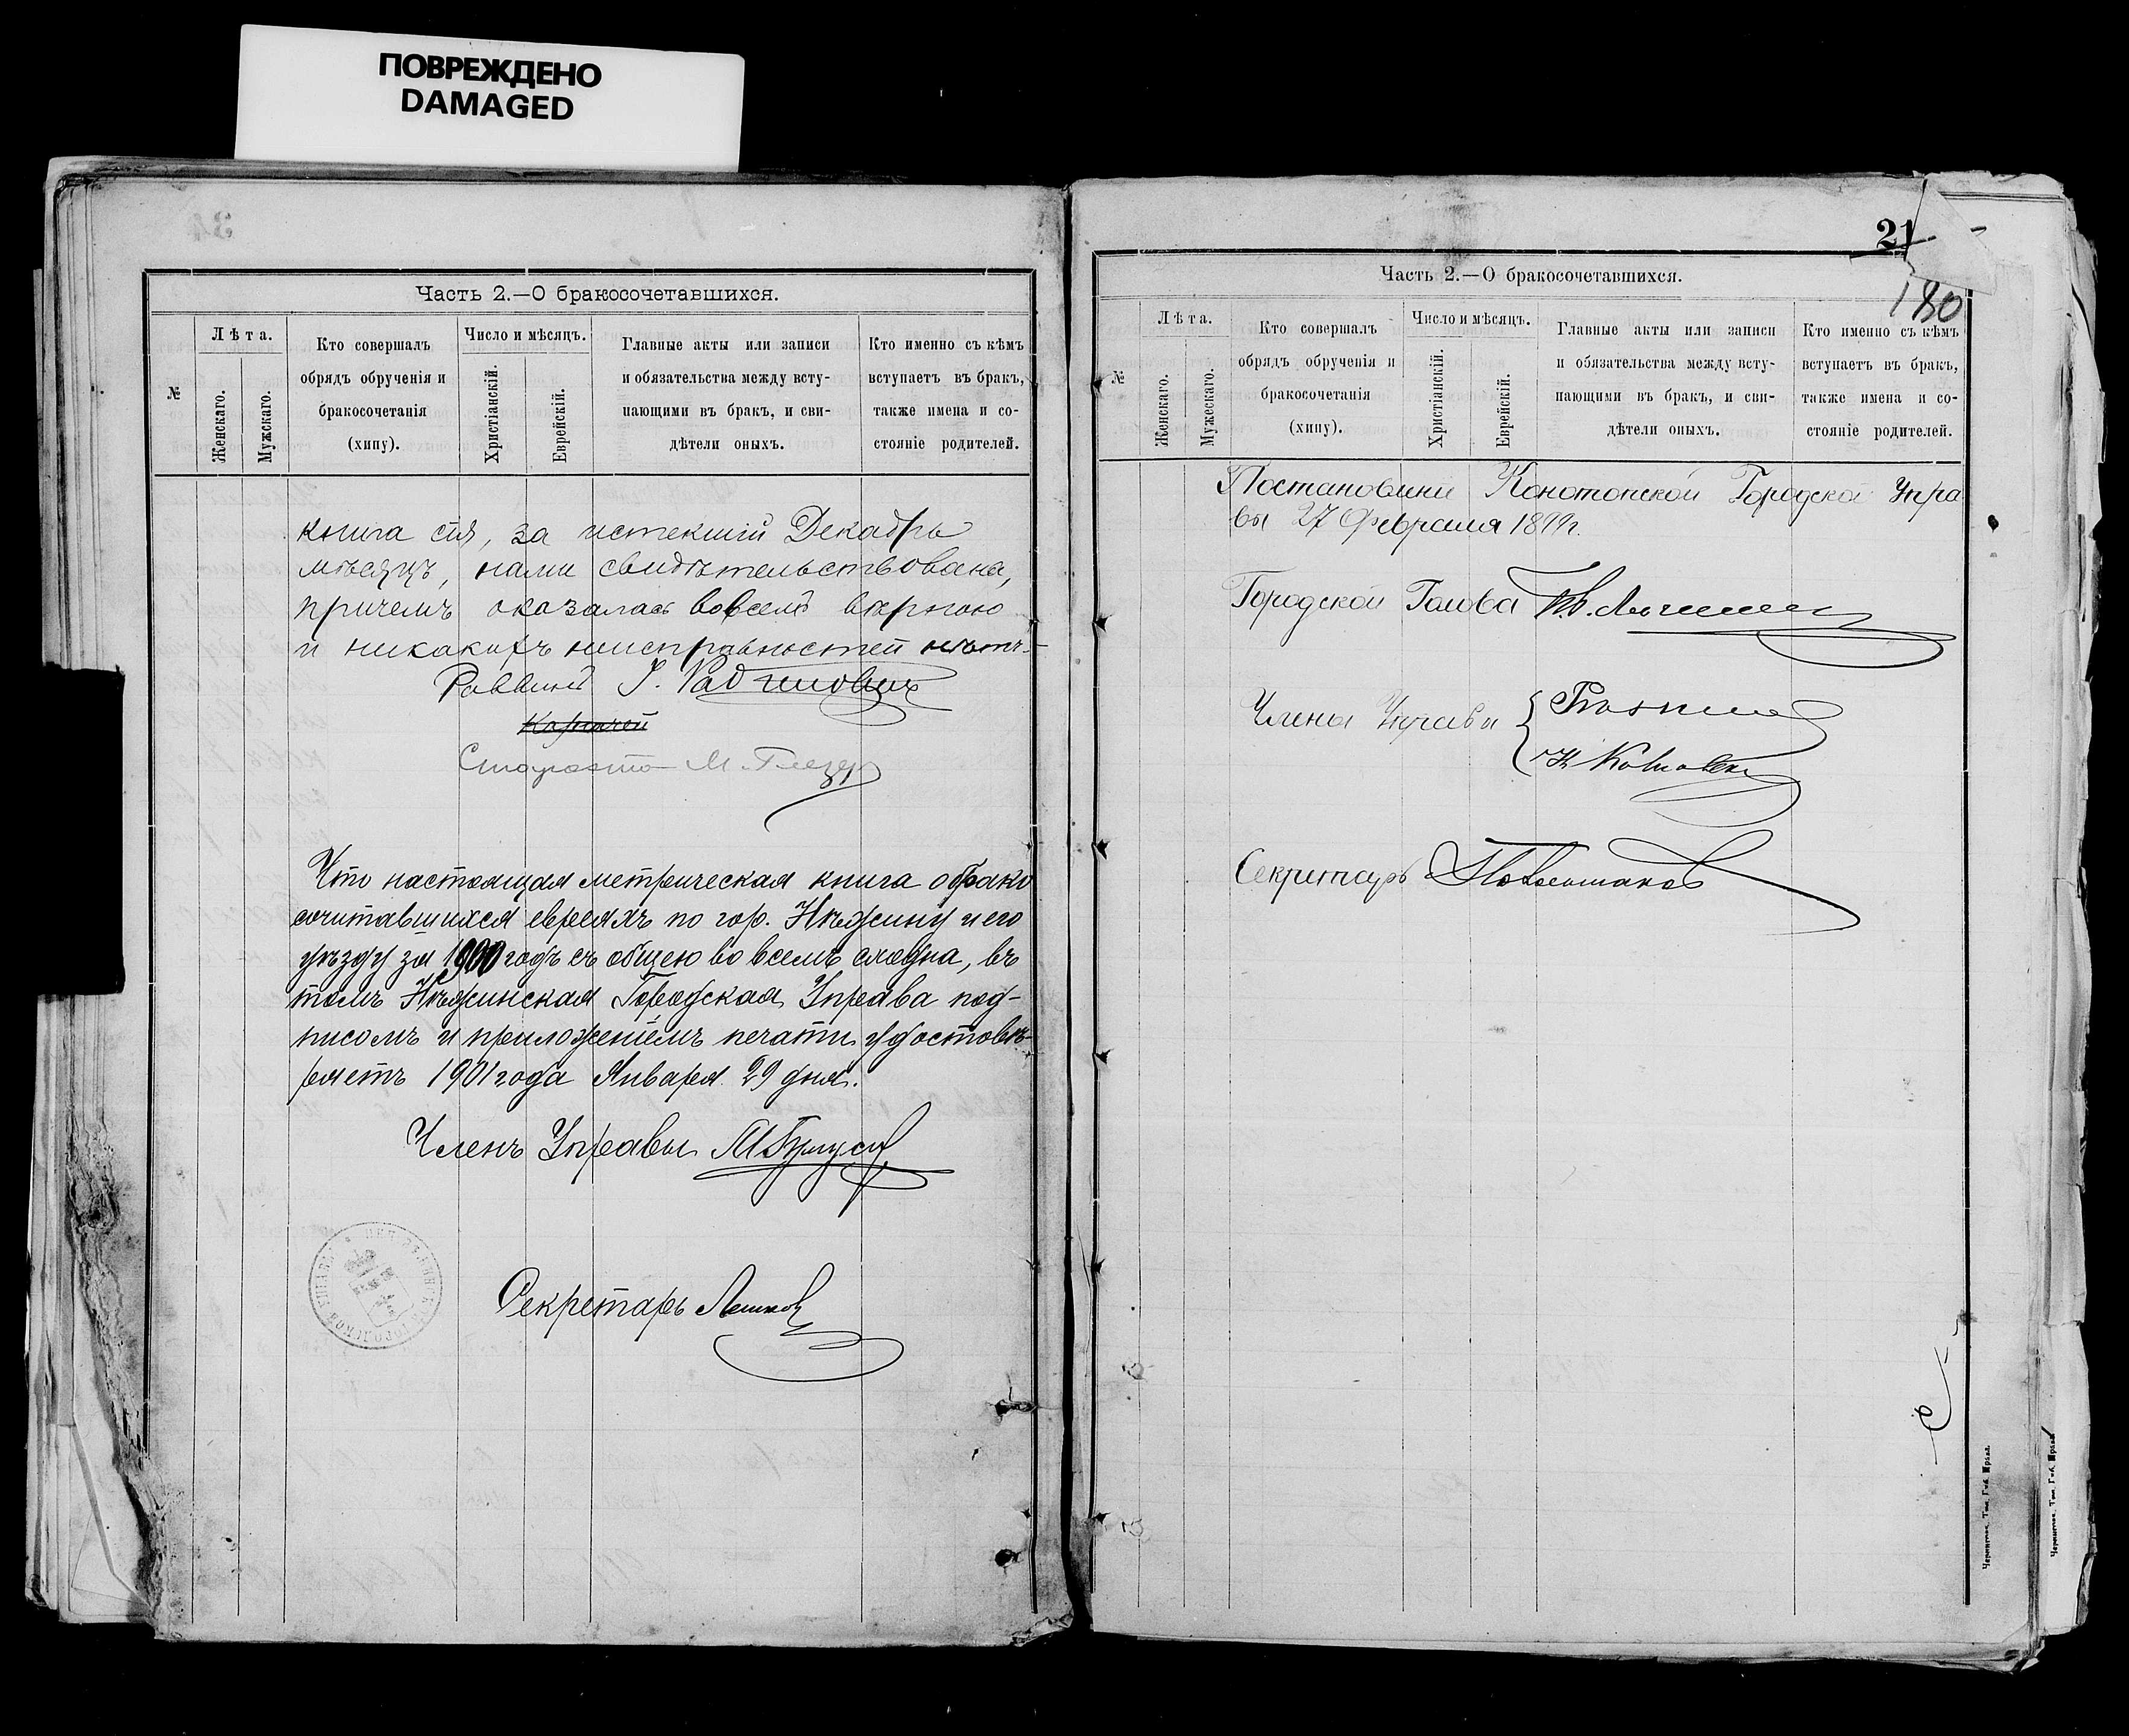 ПОВРЕЖДЕНО
DAMAGED
Часть 2.—О бракосочетавшихся.
№
Лѣта.
Женскаго.
Мужскаго.
Кто совершалъ
обрядъ обрученія и
бракосочетанія
(хипу).
Число и мѣсяцъ.
Христіанскій.
Еврейскій.
Главные акты или записи
и обязательства между всту-
пающими въ бракъ, и сви-
дѣтели оныхъ.
Кто именно съ кѣмъ
вступаетъ въ бракъ,
также имена и со-
стояніе родителей.
книга сія, за истекшій Декабрь
мѣсяцъ, нами свидѣтельствована,
причемъ оказалась вовсемъ вѣрною
и никакихъ неисправностей нѣтъ.
Раввинъ
Староста М. Глезер
Что настоящая метрическая книга о брако
сочитавшихся евреяхъ по гор. Нѣжину и его
уѣзду за 1900 годъ съ общею во всемъ сходна, въ
томъ Нѣжинская Городская Управа под-
писомъ и приложеніемъ печати удостовѣ-
ряетъ 1901 года Января 29 дня.
Членъ Управы
Секретарь
21
180
Часть 2.—О бракосочетавшихся.
№
Лѣта.
Женскаго.
Мужескаго.
Кто совершалъ
обрядъ обрученія и
бракосочетанія
(хипу).
Число и мѣсяцъ.
Христіанскій.
Еврейскій.
Главные акты или записи
и обязательства между всту-
пающими въ бракъ, и сви-
дѣтели оныхъ.
Кто именно съ кѣмъ
вступаетъ въ бракъ,
также имена и со-
стояніе родителей.
Конотопской Городской Упра
вы 27 Февраля 1899г.
Городской Голова
Члены Управы
Секретарь
Чернигов. Тип. Губ. Правл.
Чернигов. Тип. Губ. Правл.